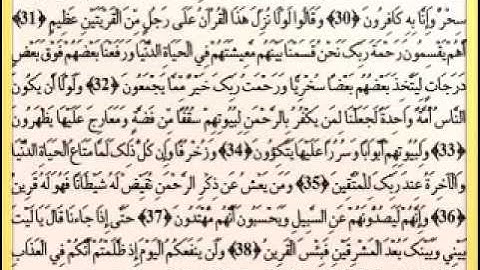 سِحْرٌ وَإِنَّا بِهِ كَافِرُونَ ﴿30﴾ وَقَالُوا لَوْلَا نُزِّلَ هَذَا الْقُرْآنُ عَلَى رَجُلٍ مِنَ الْقَرْيَتَيْنِ عَظِيمٍ ﴿31﴾
أَهُمْ يَقْسِمُونَ رَحْمَةَ رَبِّكَ نَحْنُ قَسَمْنَا بَيْنَهُمْ مَعِيشَتَهُمْ فِي الْحَيَاةِ الدُّنْيَا وَرَفَعْنَا بَعْضَهُمْ فَوْقَ بَعْضٍ
دَرَجَاتٍ لِيَتَّخِذَ بَعْضُهُمْ بَعْضًا سُخْرِيًّا وَرَحْمَتُ رَبِّكَ خَيْرٌ مِمَّا يَجْمَعُونَ ﴿32﴾ وَلَوْلَا أَنْ يَكُونَ
النَّاسُ أُمَّةً وَاحِدَةً لَجَعَلْنَا لِمَنْ يَكْفُرُ بِالرَّحْمَنِ لِبُيُوتِهِمْ سُقُفًا مِنْ فِضَّةٍ وَمَعَارِجَ عَلَيْهَا يَظْهَرُونَ
﴿33﴾ وَلِبُيُوتِهِمْ أَبْوَابًا وَسُرُرًا عَلَيْهَا يَتَّكِئُونَ ﴿34﴾ وَزُخْرُفًا وَإِنْ كُلُّ ذَلِكَ لَمَّا مَتَاعُ الْحَيَاةِ الدُّنْيَا
وَالْآخِرَةُ عِنْدَ رَبِّكَ لِلْمُتَّقِينَ ﴿35﴾ وَمَنْ يَعْشُ عَنْ ذِكْرِ الرَّحْمَنِ نُقَيِّضْ لَهُ شَيْطَانًا فَهُوَ لَهُ قَرِينٌ
﴿36﴾ وَإِنَّهُمْ لَيَصُدُّونَهُمْ عَنِ السَّبِيلِ وَيَحْسَبُونَ أَنَّهُمْ مُهْتَدُونَ ﴿37﴾ حَتَّى إِذَا جَاءَنَا قَالَ يَا لَيْتَ
بَيْنِي وَبَيْنَكَ بُعْدَ الْمَشْرِقَيْنِ فَبِئْسَ الْقَرِينُ ﴿38﴾ وَلَنْ يَنْفَعَكُمُ الْيَوْمَ إِذْ ظَلَمْتُمْ أَنَّكُمْ فِي الْعَذَابِ